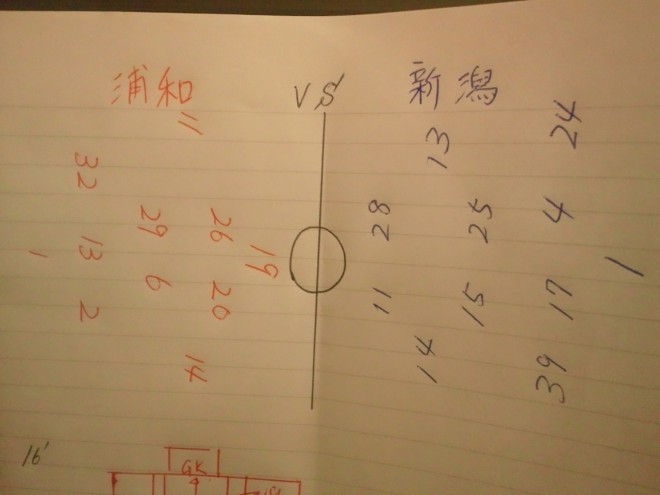 浦和 VS 新潟
11
13
24
32
28
26
29
25
4
19
13
1
6
20
11
15
17
1
2
14
14
39
16'
GK